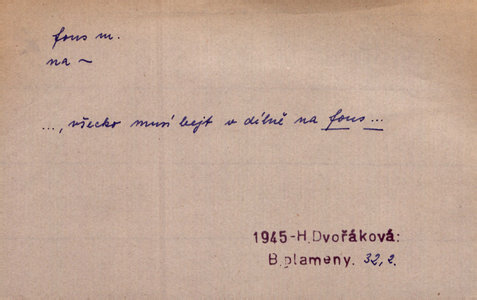 fous m.
na ~
..., všecko musí bejt v dílně na fous ...
1945-H.Dvořáková:
B.plameny. 32, 2.